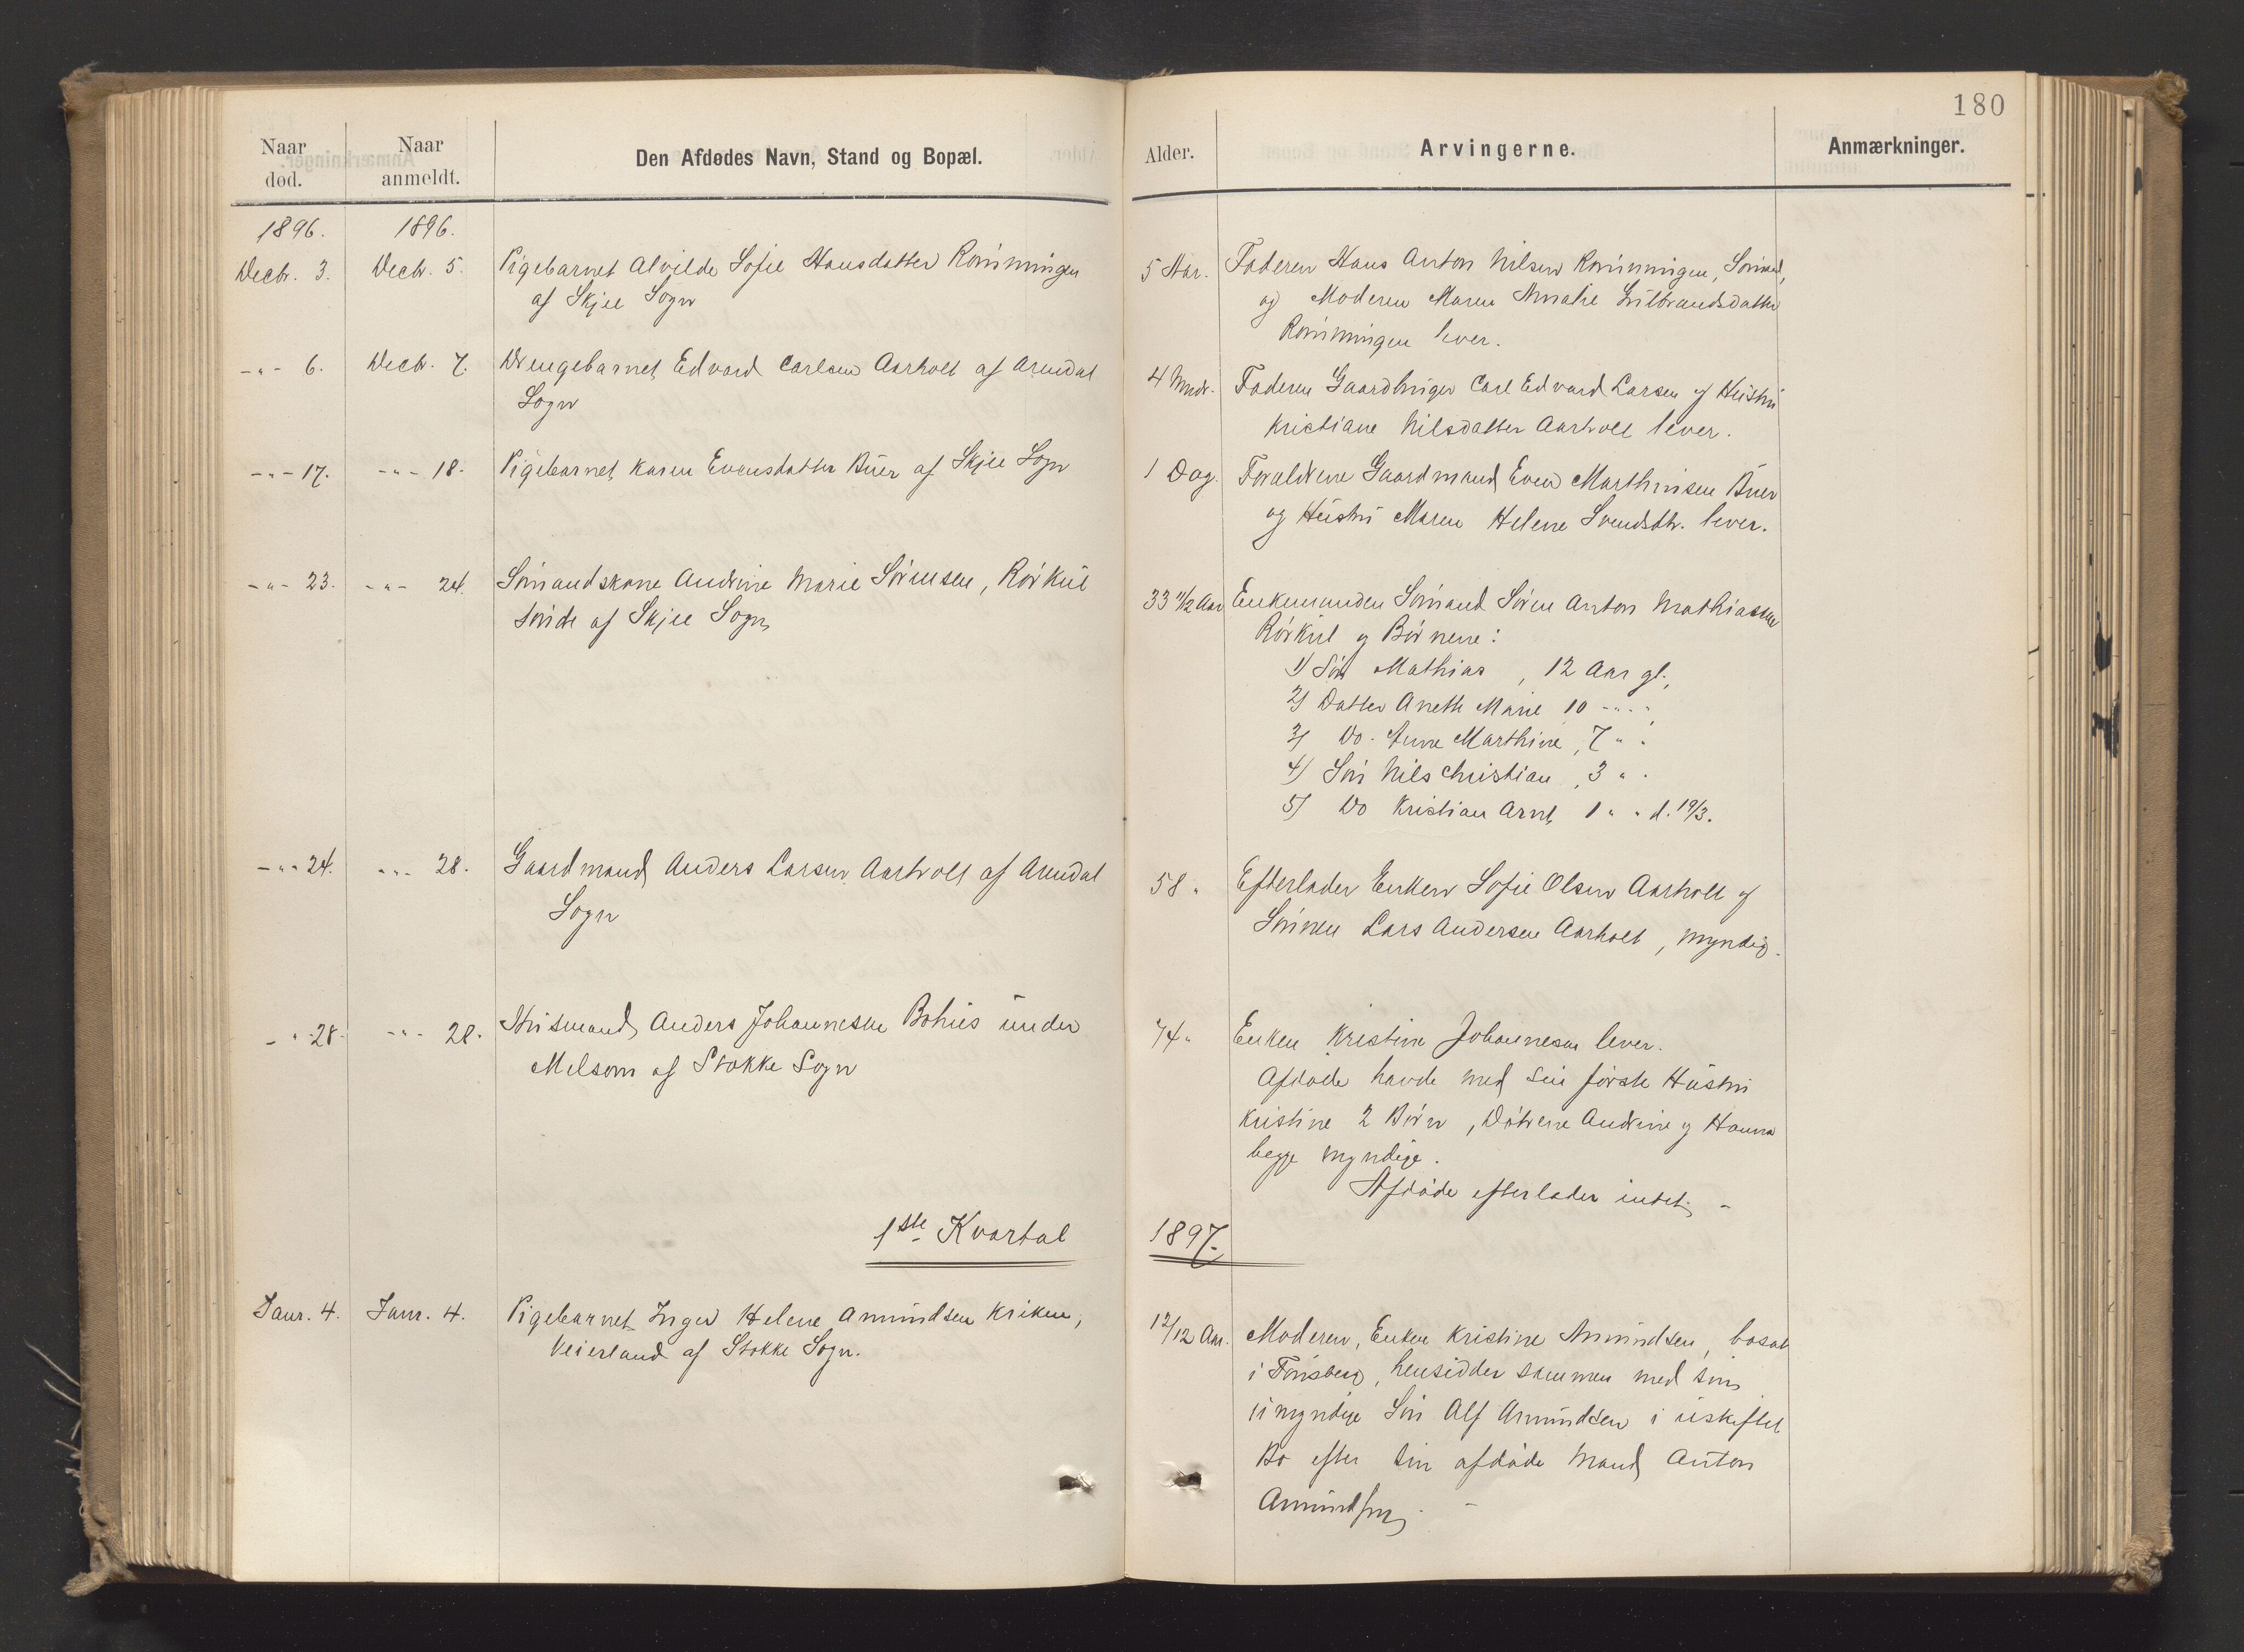 180
Naar død.
Naar anmeldt.
Den Afdødes Navn, Stand og Bopæl.
Alder.
Arvingerne.
Anmærkninger.
1896. 1896.
Decbr. 3. Decbr. 5. Pigebarnet Alvilde Sofie Hansdatter Rønningen
af Skjee Sogn
5 Aar. Faderen Hans Anton Nilsen Rønningen, Sømand,
og Moderen Maren Amalie Gulbrandsdatter
Rønningen lever.
-"- 6. Decbr. 7. Drengebarnet Edvard Carlsen Aarholt af Arendal
Sogn
4 Mndr. Faderen Gaardbruger Carl Edvard Larsen og Hustru
Kristiane Nilsdatter Aarholt lever.
-"- 17. -"- 18. Pigebarnet Karen Evensdatter Buer af Skjee Sogn
1 Dag. Forældrene Gaardmand Even Marthinsen Buer
og Hustru Maren Helene Svendsdtr. lever.
-"- 23. -"- 24. Sømandskone Andrine Marie Sørensen, Rørkul
søndre af Skjee Sogn
33 1/2 Aar Enkemanden Sømand Søren Anton Mathiassen
Rørkul og Børnene:
1) Søn Mathias, 12 Aar gl.,
2) Datter Anette Marie 10 -"-"-,
3) Do. Anne Marthine, 7 " "
4) Søn Nils Christian, 3 " "
5) Do Kristian Arnt, 1 " " d. 19/3.
-"- 24. -"- 28. Gaardmand Anders Larsen Aarholt af Arendal
Sogn
58 " Efterlader Enken Sofie Olsen Aarholt og
Sønnen Lars Andersen Aarholt, myndig.
-"- 28. -"- 28. Husmand Anders Johannesen Bohus under
Melsom af Stokke Sogn
74 " Enken Kristine Johannesen lever.
Afdøde havde med sin første Hustru
Kristine 2 Børn, Døtrene Andrine og Hanna
begge myndige.
Afdøde efterlader intet. -
1ste Kvartal 1897.
Janr. 4. Janr. 4. Pigebarnet Inger Helene Amundsen Kriken,
Veierland af Stokke Sogn.
12/12 Aar. Moderen, Enken Kristine Amundsen, bosat
i Tønsberg, hensidder sammen med sin
umyndige Søn Alf Amundsen i uskiftet
Bo efter sin afdøde Mand Anton
Amundsen. -